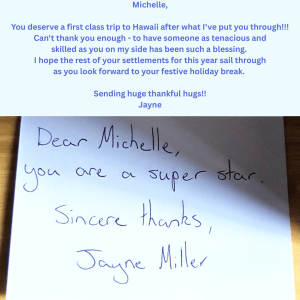 Michelle,
You deserve a first class trip to Hawaii after what I've put you through!!!
Can't thank you enough - to have someone as tenacious and
skilled as you on my side has been such a blessing.
I hope the rest of your settlements for this year sail through
as you look forward to your festive holiday break.
Sending huge thankful hugs!!
Jayne
Dear Michelle,
you are a super star.
Sincere thanks,
Jayne Miller